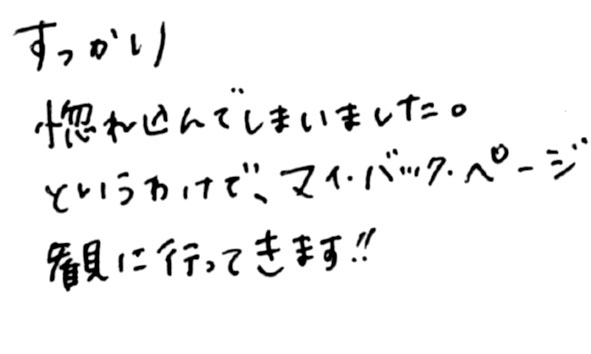 すっかり
惚れ込んでしまいました。
というわけで、マイ・バック・ページ
観に行ってきます!!